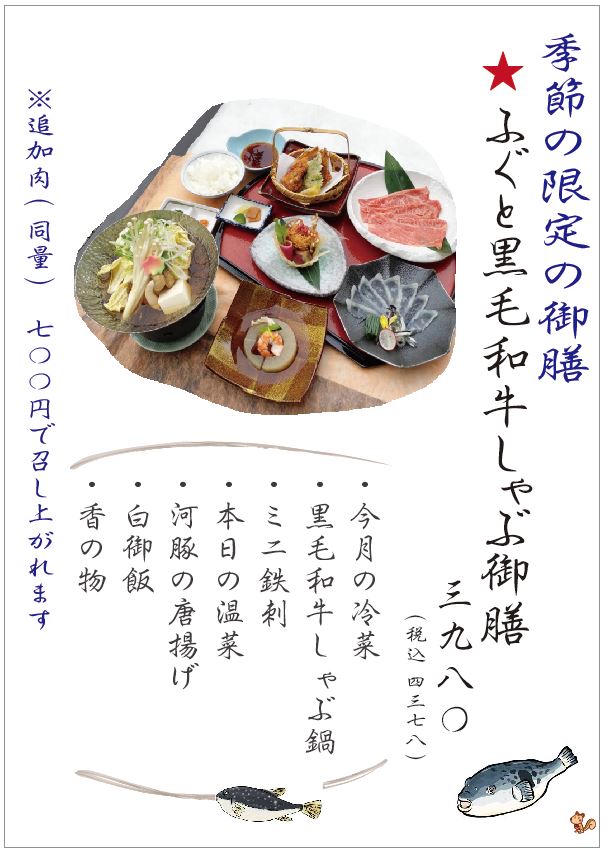 季節の限定の御膳
★ふぐと黒毛和牛しゃぶ御膳
三九八〇
(税込 四三七八)
・今月の冷菜
・黒毛和牛しゃぶ鍋
・ミニ鉄刺
・本日の温菜
・河豚の唐揚げ
・白御飯
・香の物
※追加肉(同量) 七〇〇円で召し上がれます